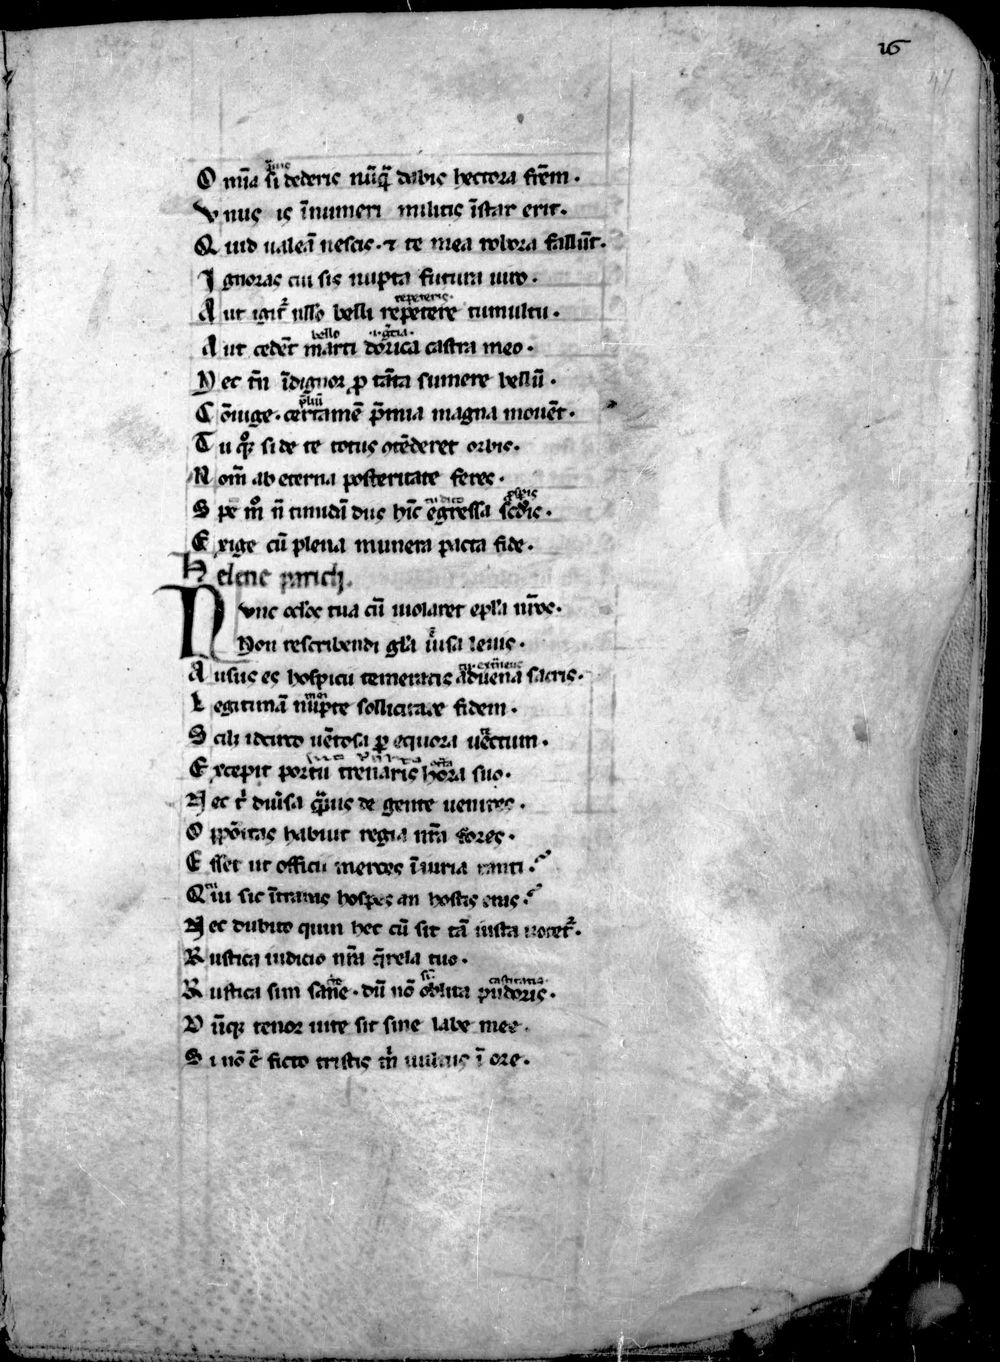 16
47
O mīa si dederis nūq̄ dabis hectora frēm .
V nus is īnumeri militis īstar erit .
Q uid ualeā nescis . ⁊ te mea robora fallūt .
I gnoras cui sis nupta futura uiro .
repeteris .
A ut igit᷑ nllo belli repetere tumultu .
bello .i. grecia .
A ut cedēt marti dorica castra meo .
N ec tn̄ īdignor ꝓ tāta sumere bellū .
p̄liū
C ōiuge . certamē p̄mia magna mouēt .
T u qͦꝫ si de te totus ꝯtēderet orbis .
N om̄ ab eterna posteritate feres .
S pe mͦ n̄ timida duc hīc egressa scd̄is .
E xige cū plena munera pacta fide .
H elene paridi .
N vnc oclos tua cū uiolaret epl'a nr̄os .
Non rescribendi gl'a uisa leuis .
A usus es hospicii temeratis aduena sacris .
L egitimā nupte sollicitare fidem .
S cili idcirco uētosa ꝑ equora uectum .
E xcepit portu trenaris hora suo .
N ec t' diu'sa q̄uis de gente uenires .
O ppōitas habuit regia nr̄a fores .
E sset ut officii merces īiuria tanti .
Q ui sic ītrabas hospes an hostis eras .
N ec dubito quin hec cū sit tā iusta uocet᷑ .
R ustica iudicio nr̄a q̄rela tuo .
castitatis
R ustica sim sane . dū nō oblita pudoris .
D ūqꝫ tenor uite sit sine labe mee .
S i nō ē ficto tristis m' uultus ī ore .